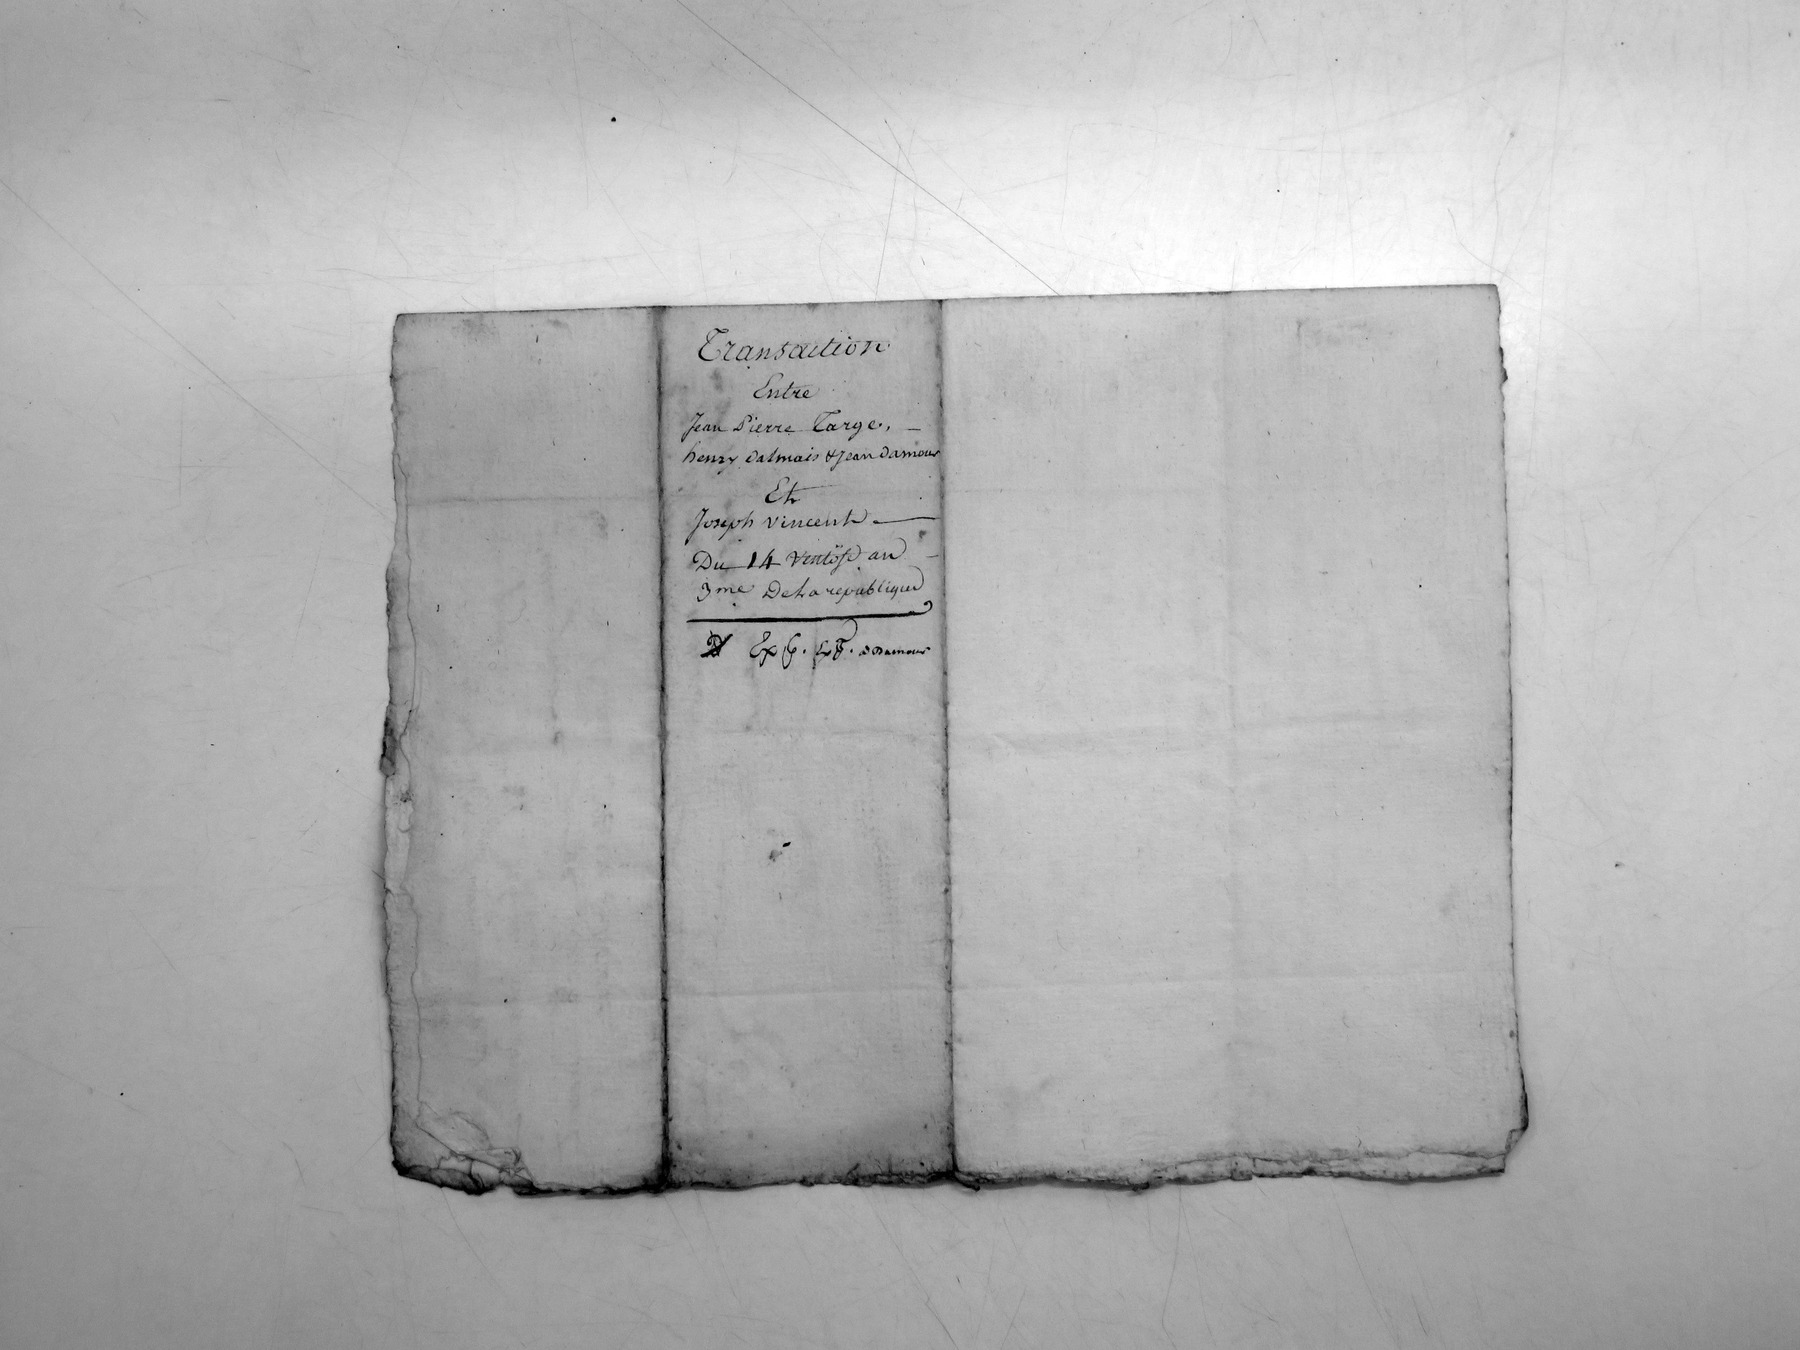 Transaction
Entre
Jean Pierre Targe, —
henry Dalmais & Jean Damour
Et
Joseph Vincent —
Du 14 Ventose an —
3me De La republique
a Damour